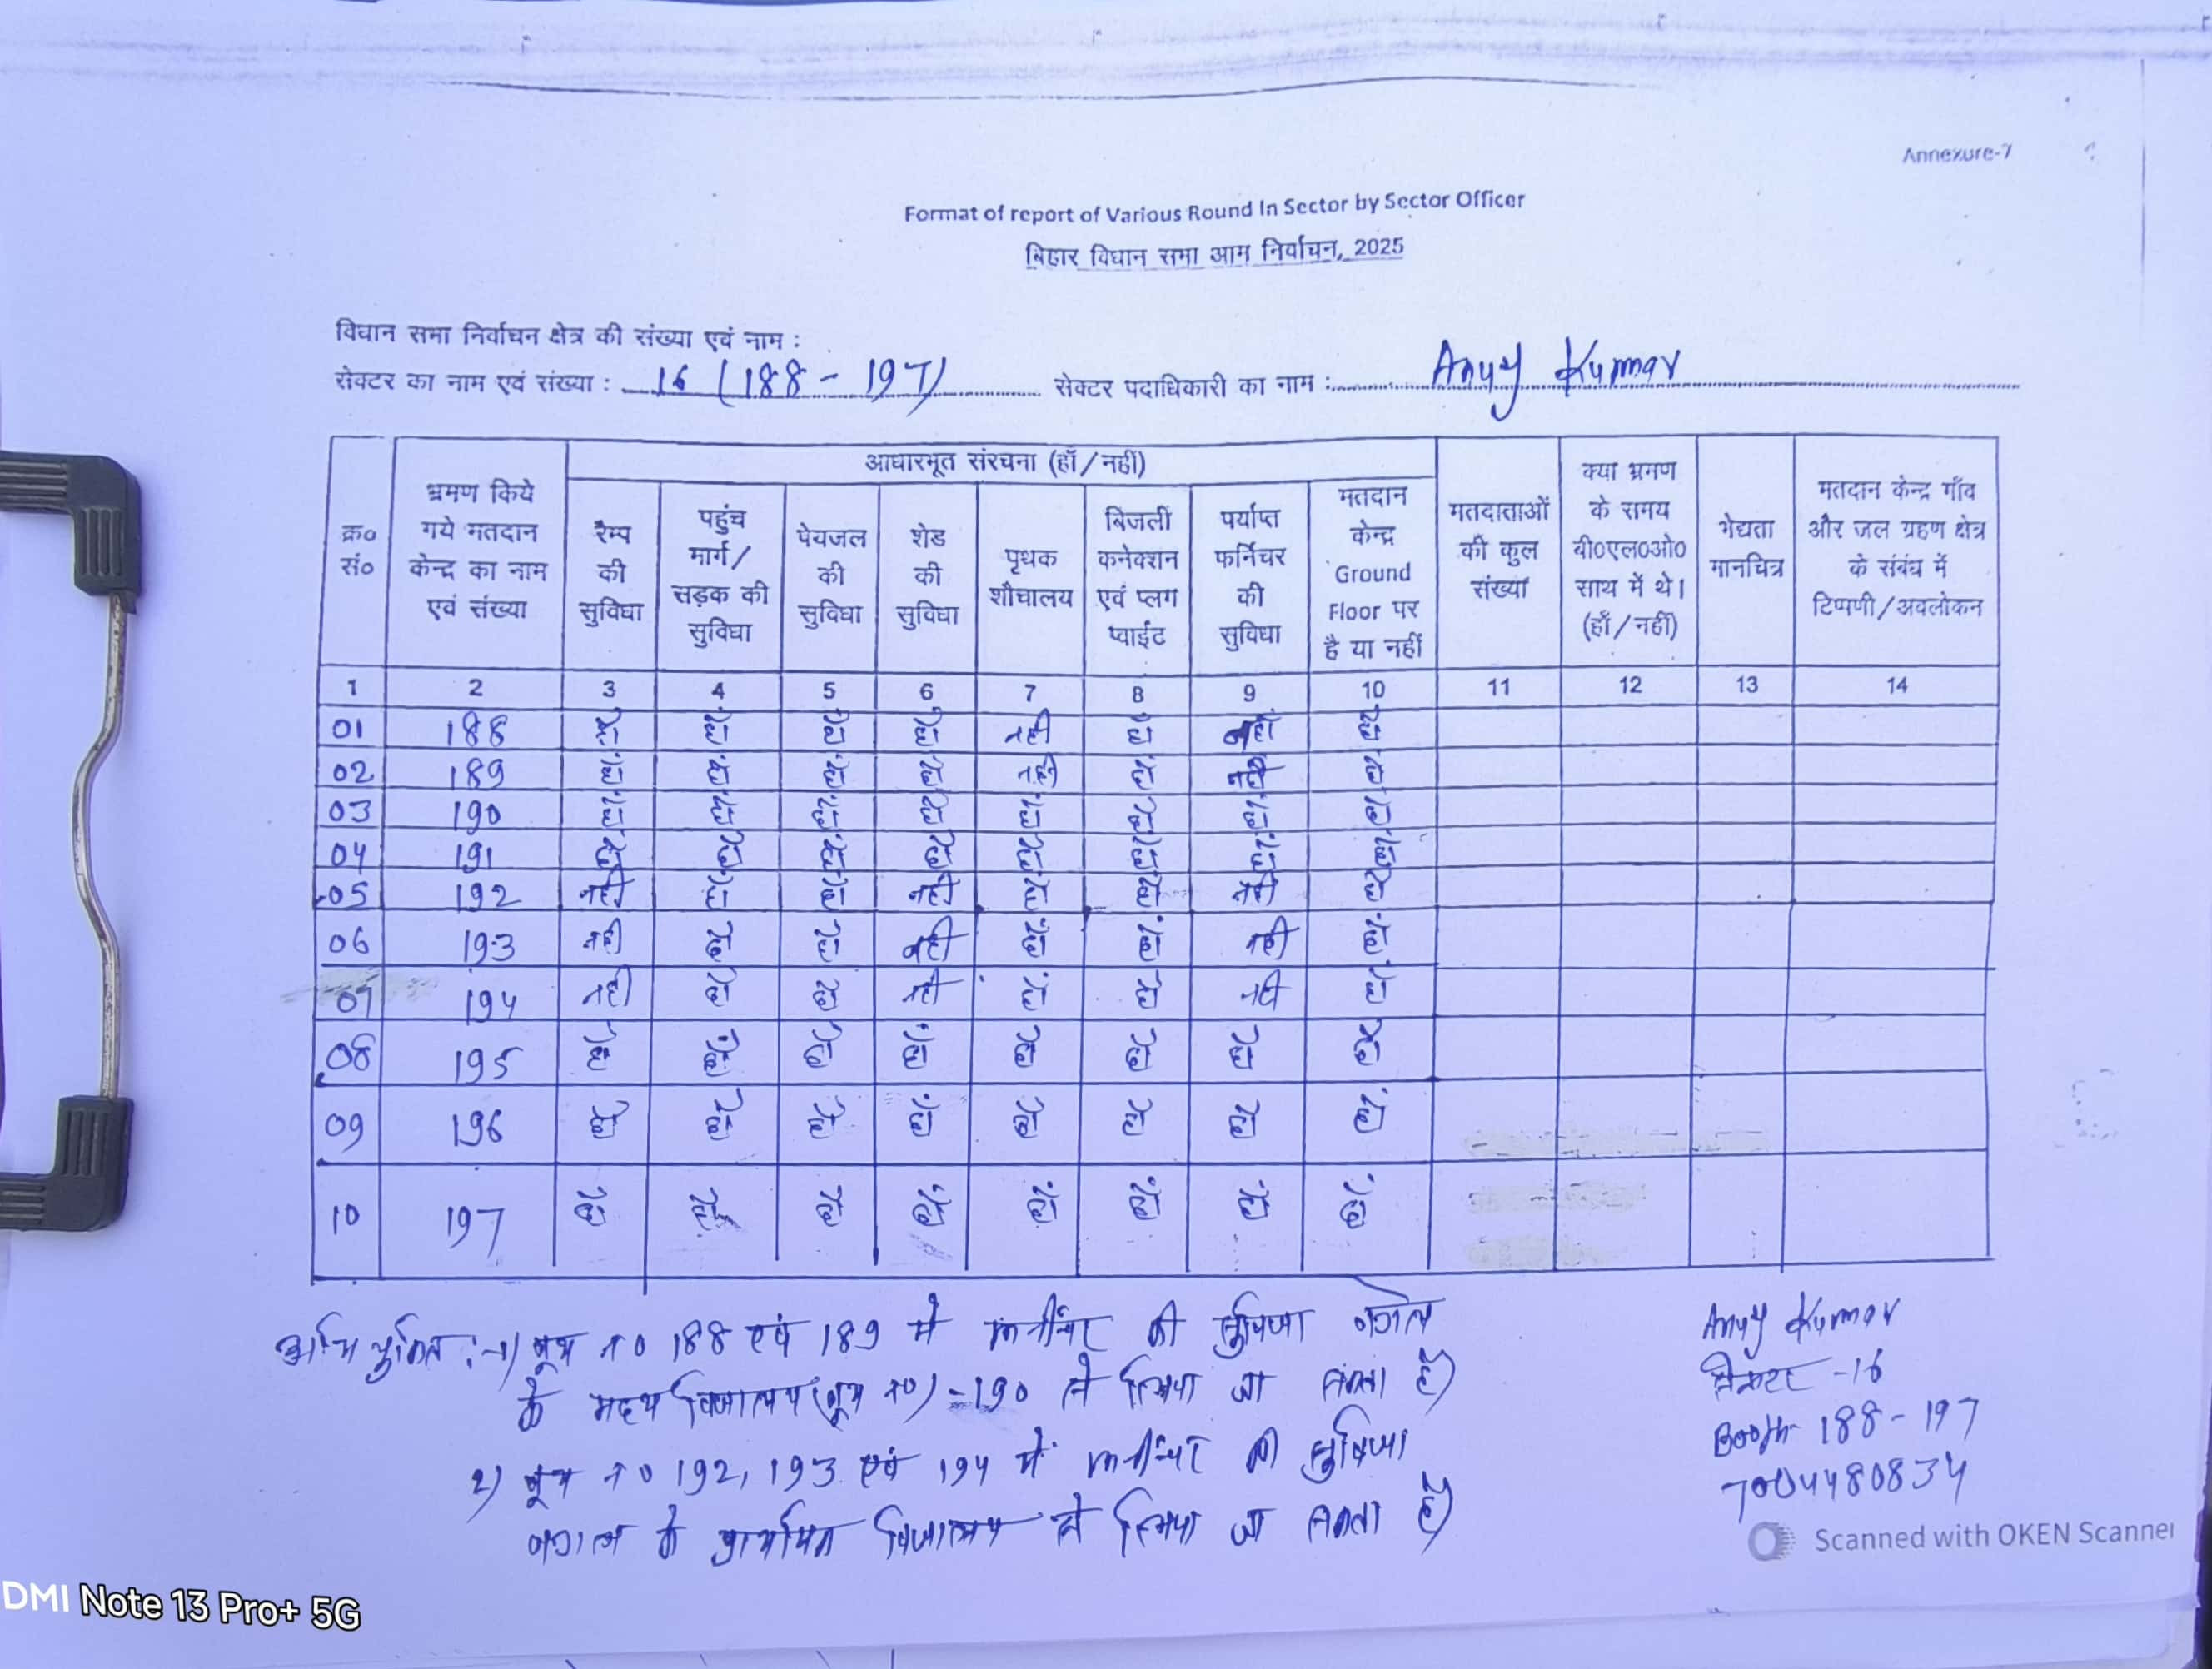 Annexure-7
Format of report of Various Round In Sector by Sector Officer
बिहार विधान सभा आम निर्वाचन, 2025
विधान सभा निर्वाचन क्षेत्र की संख्या एवं नाम :
सेक्टर का नाम एवं संख्या : 16 (188 - 197) सेक्टर पदाधिकारी का नाम : Anuj Kumar
क्र० सं० भ्रमण किये गये मतदान केन्द्र का नाम एवं संख्या आधारभूत संरचना (हाँ/नहीं) मतदाताओं की कुल संख्या क्या भ्रमण के समय बी०एल०ओ० साथ में थे। (हाँ/नहीं) भेद्यता मानचित्र मतदान केन्द्र गाँव और जल ग्रहण क्षेत्र के संबंध में टिप्पणी/अवलोकन
रैम्प की सुविधा पहुंच मार्ग/सड़क की सुविधा पेयजल की सुविधा शेड की सुविधा पृथक शौचालय बिजली कनेक्शन एवं प्लग प्वाईंट पर्याप्त फर्निचर की सुविधा मतदान केन्द्र Ground Floor पर है या नहीं
1 2 3 4 5 6 7 8 9 10 11 12 13 14
01 188 हाँ हाँ हाँ हाँ नहीं हाँ नहीं हाँ
02 189 हाँ हाँ हाँ हाँ नहीं हाँ नहीं हाँ
03 190 हाँ हाँ हाँ हाँ हाँ हाँ हाँ हाँ
04 191 हाँ हाँ हाँ हाँ हाँ हाँ हाँ हाँ
05 192 नहीं हाँ हाँ नहीं हाँ हाँ नहीं हाँ
06 193 नहीं हाँ हाँ नहीं हाँ हाँ नहीं हाँ
07 194 नहीं हाँ हाँ नहीं हाँ हाँ नहीं हाँ
08 195 हाँ हाँ हाँ हाँ हाँ हाँ हाँ हाँ
09 196 हाँ हाँ हाँ हाँ हाँ हाँ हाँ हाँ
10 197 हाँ हाँ हाँ हाँ हाँ हाँ हाँ हाँ
:-1) बूथ न० 188 एवं 189 में फर्नीचर की सुविधा बगल
के मध्य विद्यालय (बूथ न०) - 190 से लिया जा सकता है)
2) बूथ न० 192, 193 एवं 194 में फर्नीचर की सुविधा
बगल के प्राथमिक विद्यालय से लिया जा सकता है)
Anuj Kumar
सेक्टर - 16
Booth- 188 - 197
7004480834
Scanned with OKEN Scanner
DMI Note 13 Pro+ 5G